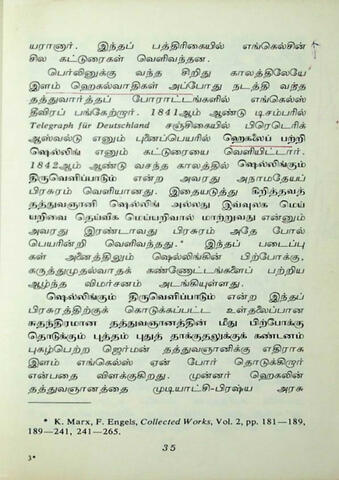 யரானார். இந்தப் பத்திரிகையில் எங்கெல்சின்
சில கட்டுரைகள் வெளிவந்தன.
பெர்லினுக்கு வந்த சிறிது காலத்திலேயே
இளம் ஹெகல்வாதிகள் அப்போது நடத்தி வந்த
தத்துவார்த்தப் போராட்டங்களில் எங்கெல்ஸ்
தீவிரப் பங்கேற்றார். 1841ஆம் ஆண்டு டிசம்பரில்
Telegraph für Deutschland சஞ்சிகையில் பிரெடெரிக்
ஆஸ்வல்டு எனும் புனைப்பெயரில் ஹெகலைப் பற்றி
ஷெல்லிங் எனும் கட்டுரையை வெளியிட்டார்.
1842ஆம் ஆண்டு வசந்த காலத்தில் ஷெல்லிங்கும்
திருவெளிப்பாடும் என்ற அவரது அநாமதேயப்
பிரசுரம் வெளியானது. இதையடுத்து கிறித்தவத்
தத்துவஞானி ஷெல்லிங் அல்லது இவ்வுலக மெய்
யறிவை தெய்விக மெய்யறிவால் மாற்றுவது என்னும்
அவரது இரண்டாவது பிரசுரம் அதே போல்
பெயரின்றி வெளிவந்தது.* இந்தப் படைப்பு
கள் அனைத்திலும் ஷெல்லிங்கின் பிற்போக்கு,
கருத்துமுதல்வாதக் கண்ணோட்டங்களைப் பற்றிய
ஆழ்ந்த விமர்சனம் அடங்கியுள்ளது.
ஷெல்லிங்கும் திருவெளிப்பாடும் என்ற இந்தப்
பிரசுரத்திற்குக் கொடுக்கப்பட்ட உள்தலைப்பான
சுதந்திரமான தத்துவஞானத்தின் மீது பிற்போக்கு
தொடுக்கும் புத்தம் புதுத் தாக்குதலுக்குக் கண்டனம்
புகழ்பெற்ற ஜெர்மன் தத்துவஞானிக்கு எதிராக
இளம் எங்கெல்ஸ் ஏன் போர் தொடுக்கிறார்
என்பதை விளக்குகிறது. முன்னர் ஹெகலின்
தத்துவஞானத்தை முடியாட்சி-பிரஷ்ய அரசு
* K. Marx, F. Engels, Collected Works, Vol. 2, pp. 181—189,
189—241, 241—265.
35
3*